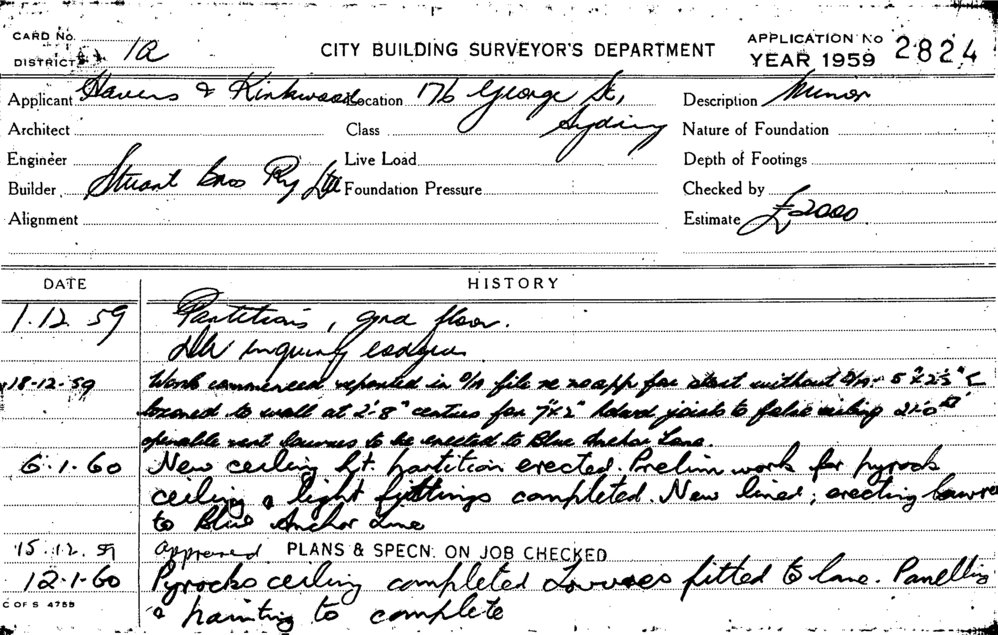 CARD No.
DISTRICT 1A
CITY BUILDING SURVEYOR'S DEPARTMENT
APPLICATION NO 2824
YEAR 1959
Applicant Havers & Kirkwood Location 176 George St, Sydney Description Minor
Architect Class Nature of Foundation
Engineer Live Load Depth of Footings
Builder Stuart Bros Pty Ltd Foundation Pressure Checked by
Alignment Estimate £2000
DATE HISTORY
1.12.59 Partitions, grnd floor.
inquiry lodged
18-12-59 Work commenced reported in file re no app for start without 5"x2½"
to wall at 2'-8" centres for 7"x2" joists to false ceiling 21'-0"
openable vent louvres to be erected to Blue Anchor Lane.
6.1.60 New ceiling ht. partition erected. Prelim work for pyrock
ceiling & light fittings completed. New lined; erecting louvres
to Blue Anchor Lane
15.12.59 approved PLANS & SPECN. ON JOB CHECKED
12-1-60 Pyrocks ceiling completed Louvres fitted to lane. Panelling
& painting to complete
C OF S 475B